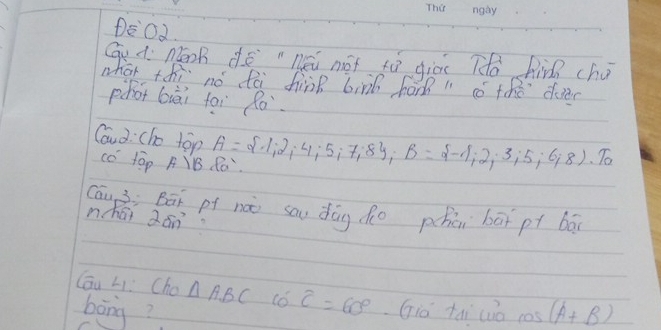 Thứ ngày
Đề 02.
Câu 1: Mệnh đề "Nếu một tứ giác là hình chữ
nhật thì nó là hình bình hành" có thể được
phát biểu lại là.
Câu 2: Cho tập A = {1;2;4;5;7;8}; B = {-1;2;3;5;6;8}. Ta
có tập A\B là:
Câu 3: Bất pt nào sau đây ko phải bất pt bậc
nhất 2 ẩn?
Câu 4: Cho Δ ABC có Ĉ = 60°. Giá trị của cos(A+B)
bằng?